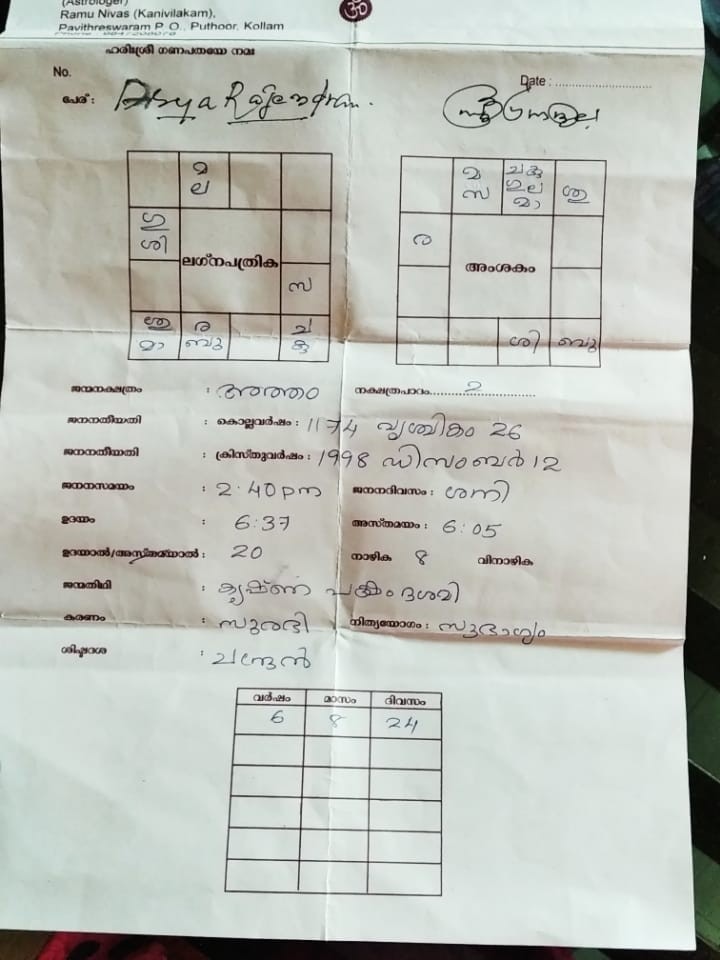 (Astrologer)
Ramu Nivas (Kanivilakam),
Pavithreswaram P O., Puthoor, Kollam
ഹരിശ്രീ ഗണപതയേ നമഃ
No.
Date :
പേര് : Rajendran.
മ
ല
ഗു
ശി
ലഗ്നപത്രിക
സ
ശു
മാ
ര
ബു
ച
കു
മ
സ
ച കു
ഗു ല
മാ
ശു
ര
അംശകം
ശി
ബു
ജന്മനക്ഷത്രം : അത്തം നക്ഷത്രപാദം 2
ജനനതീയതി : കൊല്ലവർഷം : 1174 വൃശ്ചികം 26
ജനനതീയതി : ക്രിസ്തുവർഷം : 1998 ഡിസംബർ 12
ജനനസമയം : 2.40pm ജനനദിവസം : ശനി
ഉദയം : 6:37 അസ്തമയം : 6:05
ഉദയാൽ/അസ്തമയാൽ : 20 നാഴിക 8 വിനാഴിക
ജന്മതിഥി : കൃഷ്ണ പക്ഷം ദശമി
കരണം : സുരഭി നിത്യയോഗം : സൗഭാഗ്യം
ശിഷ്ടദശ : ചന്ദ്രൻ
വർഷം മാസം ദിവസം
6 8 24